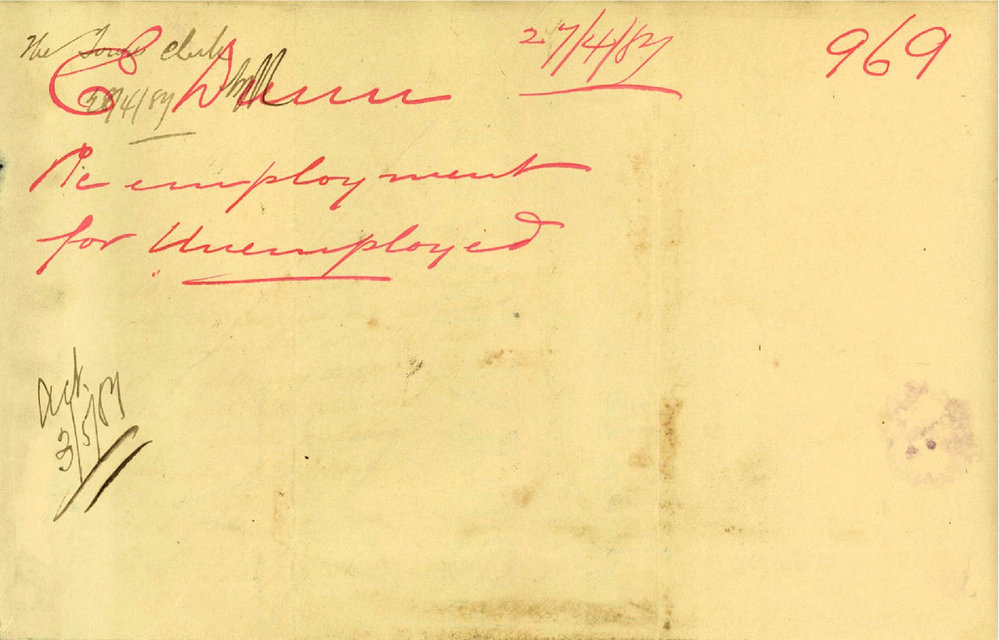 The Town Clerk
E Dunn
27/4/87
969
28/4/87
Re employment
for Unemployed
Act.
3/5/87